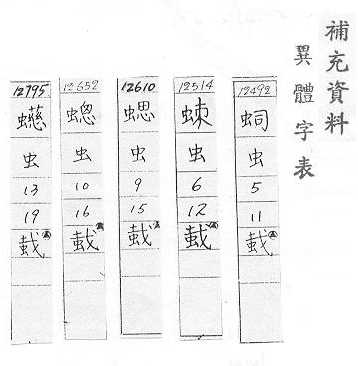 補充資料
異體字表
12492
虫
5
11
蛓
12514
虫
6
12
蛓
12610
虫
9
15
蛓
12652
虫
10
16
蛓
12795
虫
13
19
蛓